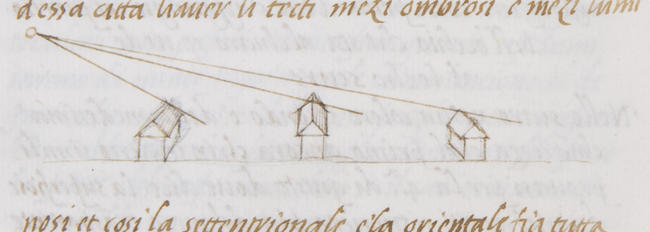 d'essa citta haver li tecti mezi ombrosi e mezi lumi
nosi et cosi la settentrionale e la orientale fia tutta